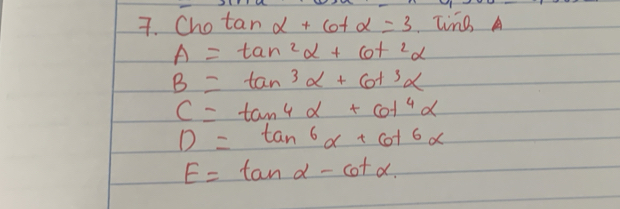 7. Cho tan α + cot α = 3. Tính A
A = tan²α + cot²α
B = tan³α + cot³α
C = tan⁴α + cot⁴α
D = tan⁶α + cot⁶α
E = tan α - cot α.